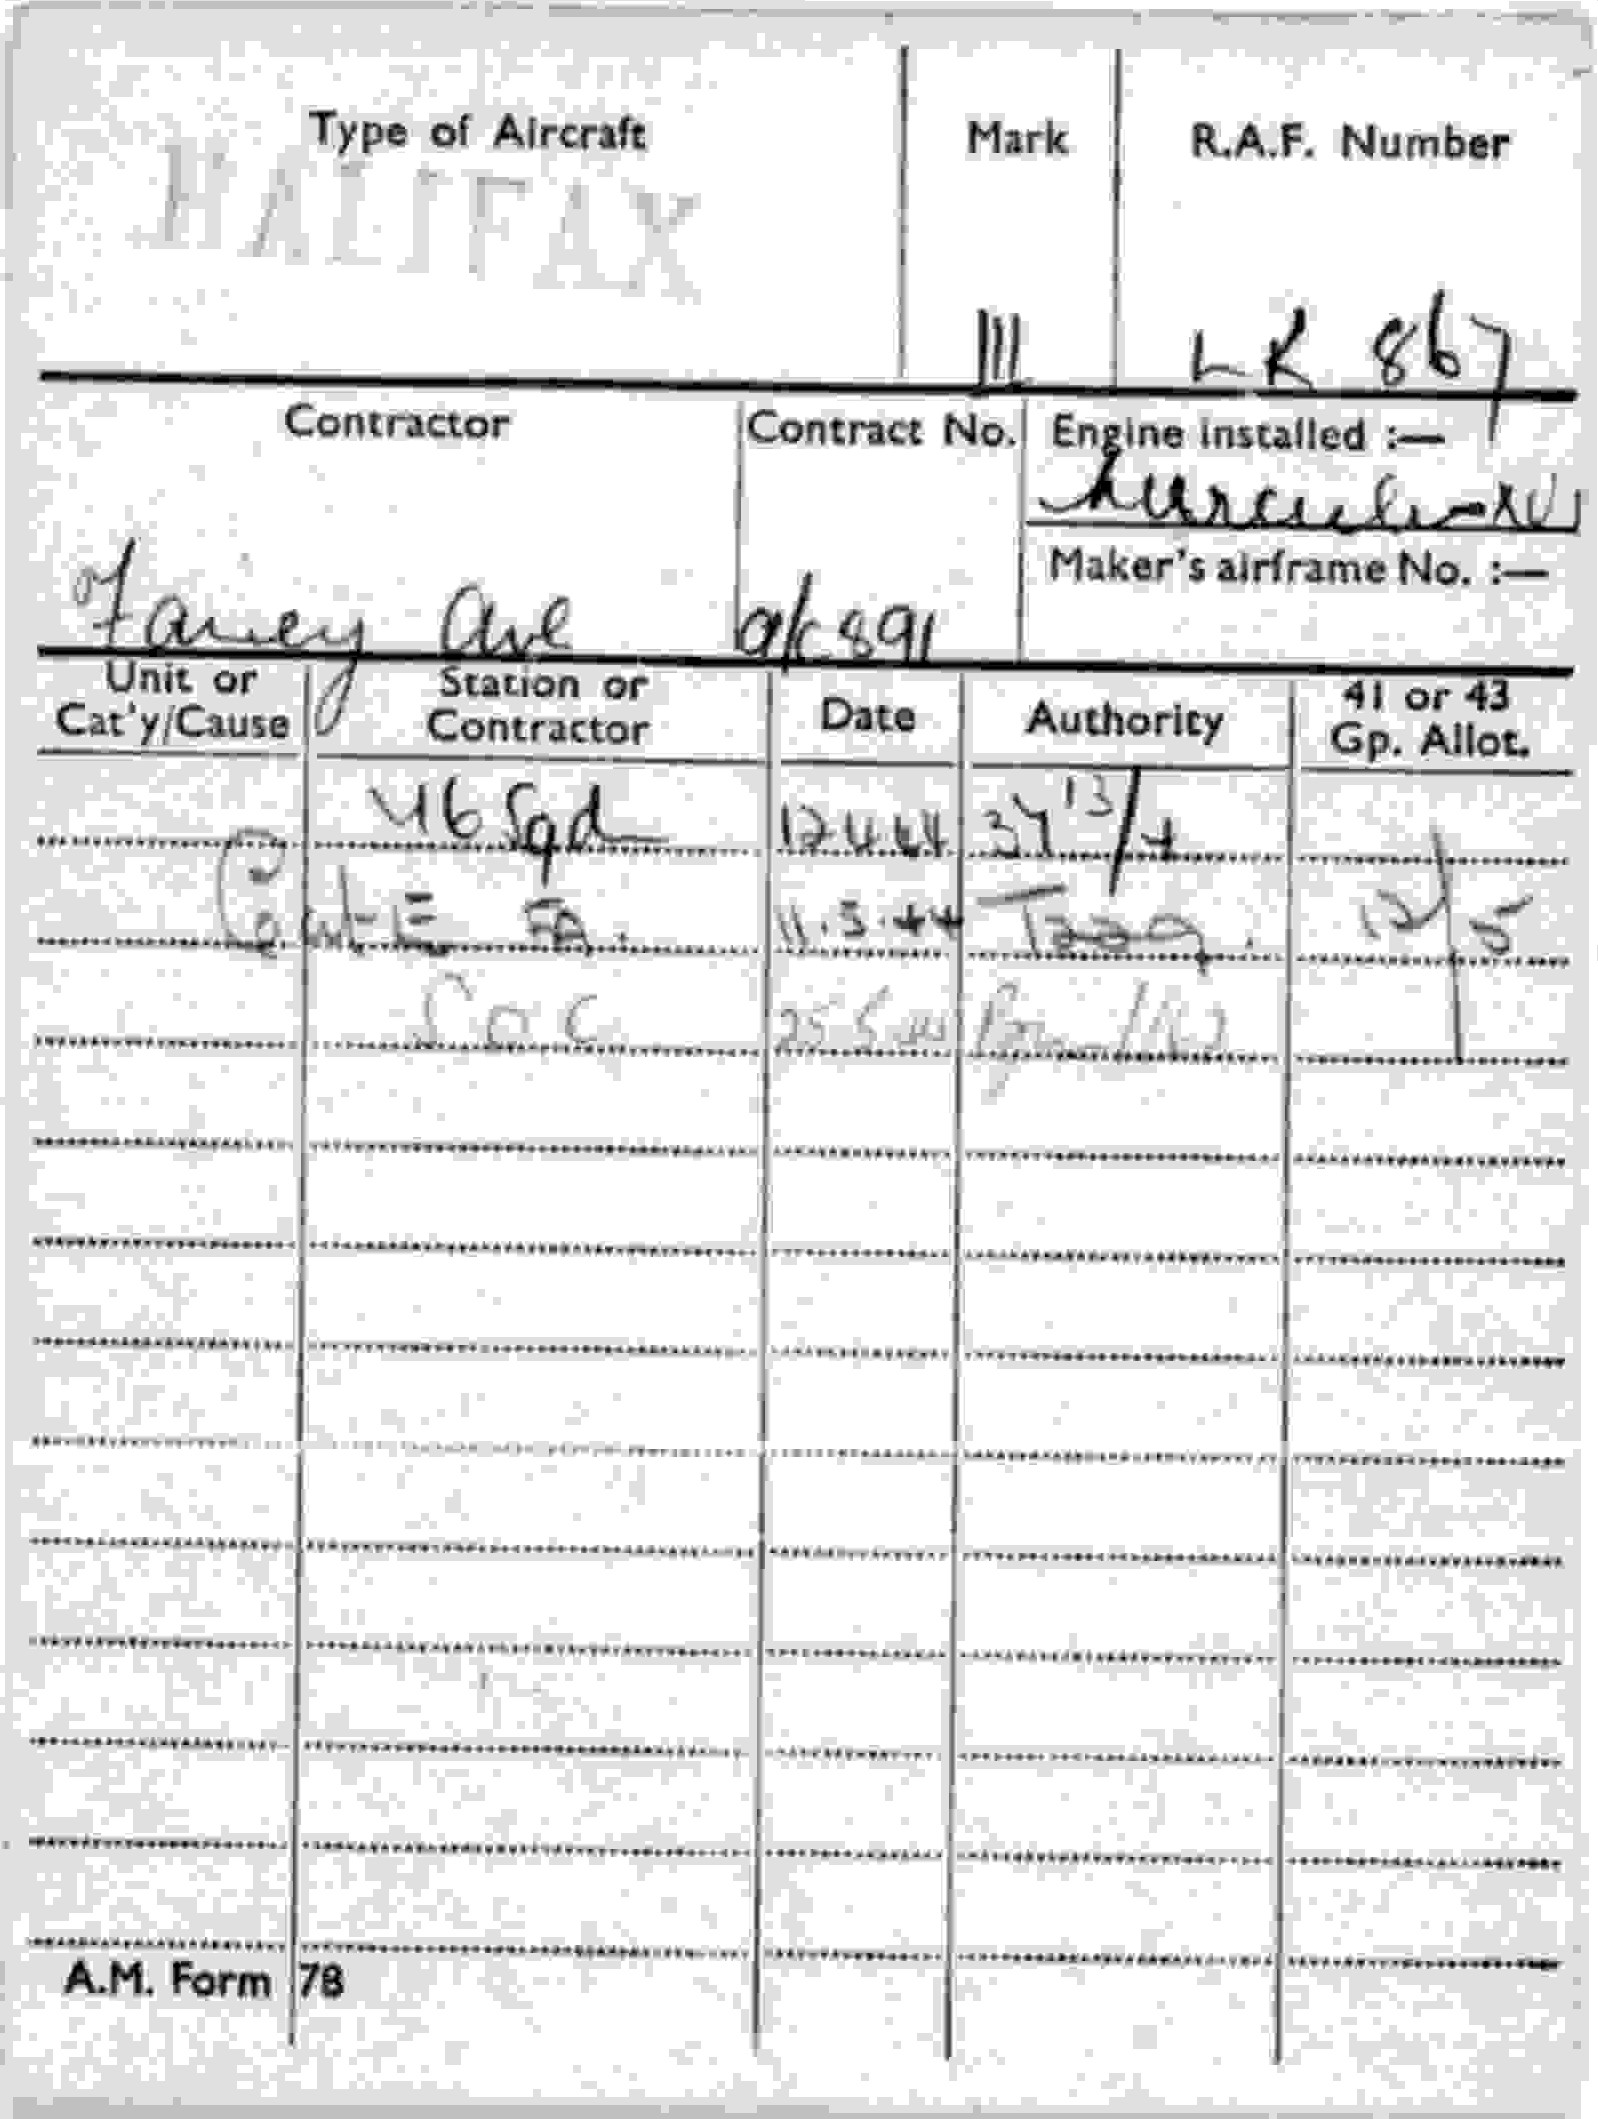 Type of Aircraft Mark R.A.F. Number
HALIFAX III LK 867
Contractor Contract No. Engine installed :—
Maker's airframe No. :—
Fairey Ave a/c 891
Unit or Cat'y/Cause Station or Contractor Date Authority 41 or 43 Gp. Allot.
76 Sqd 12.4.44 13/4
Cat E FB. 11.5.44 12/5
SOC 25 5 44
A.M. Form 78